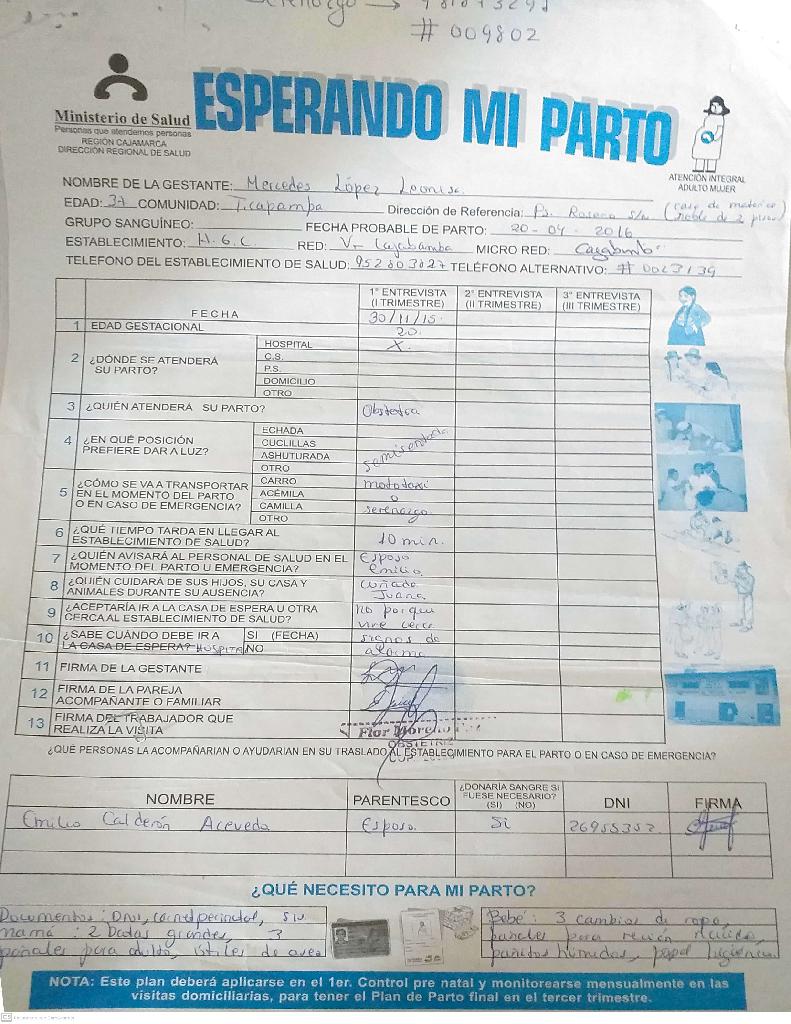 # 009802
Ministerio de Salud
Personas que atendemos personas
REGIÓN CAJAMARCA
DIRECCIÓN REGIONAL DE SALUD
ESPERANDO MI PARTO
ATENCIÓN INTEGRAL
ADULTO MUJER
NOMBRE DE LA GESTANTE: Mercedes López Leonisa
EDAD: 37 COMUNIDAD: Ticapampa Dirección de Referencia: Ps. s/n (casa de material
GRUPO SANGUÍNEO: FECHA PROBABLE DE PARTO: 20-04-2016
ESTABLECIMIENTO: H.G.C. RED: V- Cajabamba MICRO RED: Cajabamba
TELEFONO DEL ESTABLECIMIENTO DE SALUD: 952803027 TELÉFONO ALTERNATIVO: # 0023139
FECHA 1° ENTREVISTA (I TRIMESTRE) 2° ENTREVISTA (II TRIMESTRE) 3° ENTREVISTA (III TRIMESTRE)
30/11/15
1 EDAD GESTACIONAL 20
2 ¿DÓNDE SE ATENDERÁ SU PARTO?
HOSPITAL X
C.S.
P.S.
DOMICILIO
OTRO
3 ¿QUIÉN ATENDERÁ SU PARTO? Obstetra
4 ¿EN QUÉ POSICIÓN PREFIERE DAR A LUZ?
ECHADA
CUCLILLAS
ASHUTURADA
OTRO
semisentada
5 ¿CÓMO SE VA A TRANSPORTAR EN EL MOMENTO DEL PARTO O EN CASO DE EMERGENCIA?
CARRO mototaxi
ACÉMILA o
CAMILLA serenazgo
OTRO
6 ¿QUÉ TIEMPO TARDA EN LLEGAR AL ESTABLECIMIENTO DE SALUD? 10 min.
7 ¿QUIÉN AVISARÁ AL PERSONAL DE SALUD EN EL MOMENTO DEL PARTO U EMERGENCIA? Esposo Emilio
8 ¿QUIÉN CUIDARÁ DE SUS HIJOS, SU CASA Y ANIMALES DURANTE SU AUSENCIA? cuñada Juana
9 ¿ACEPTARÍA IR A LA CASA DE ESPERA U OTRA CERCA AL ESTABLECIMIENTO DE SALUD? no porque vive cerca
10 ¿SABE CUÁNDO DEBE IR A LA CASA DE ESPERA? HOSPITAL SI (FECHA) NO signos de alarma
11 FIRMA DE LA GESTANTE
12 FIRMA DE LA PAREJA ACOMPAÑANTE O FAMILIAR
13 FIRMA DEL TRABAJADOR QUE REALIZA LA VISITA
Flor Moreno
OBSTETRIZ
¿QUÉ PERSONAS LA ACOMPAÑARIAN O AYUDARIAN EN SU TRASLADO AL ESTABLECIMIENTO PARA EL PARTO O EN CASO DE EMERGENCIA?
NOMBRE PARENTESCO ¿DONARÍA SANGRE SI FUESE NECESARIO? (SI) (NO) DNI FIRMA
Emilio Calderón Acevedo Esposo Si 26955352
¿QUÉ NECESITO PARA MI PARTO?
Documentos: DNI, carnet perinatal, sis
mamá: 2 batas grandes, 3
pañales para adulto, útiles de aseo
Bebé: 3 cambios de ropa,
pañales para recién nacido,
pañitos húmedos, papel higiénico
NOTA: Este plan deberá aplicarse en el 1er. Control pre natal y monitorearse mensualmente en las
visitas domiciliarias, para tener el Plan de Parto final en el tercer trimestre.